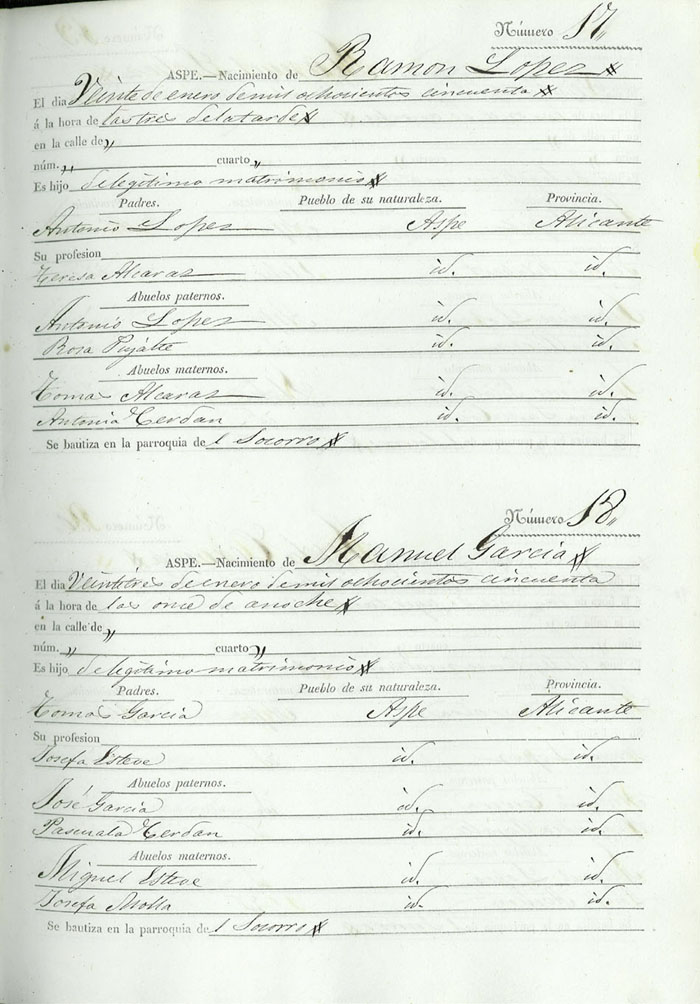 Número 17,,
ASPE.—Nacimiento de Ramon Lopez
El dia Veinte de enero de mil ochocientos cincuenta
á la hora de las tres de la tarde
en la calle de ,,
núm. ,, cuarto ,,
Es hijo de legitimo matrimonio
Padres. Pueblo de su naturaleza. Provincia.
Antonio Lopez Aspe Alicante
Su profesion
Teresa Alcaraz id. id.
Abuelos paternos.
Antonio Lopez id. id.
Rosa Pujalte id. id.
Abuelos maternos.
Tomas Alcaraz id. id.
Antonia Cerdan id. id.
Se bautiza en la parroquia de l Socorro
Número 18,,
ASPE.—Nacimiento de Manuel Garcia
El dia Veintitres de enero de mil ochocientos cincuenta
á la hora de las once de anoche
en la calle de ,,
núm. ,, cuarto ,,
Es hijo de legitimo matrimonio
Padres. Pueblo de su naturaleza. Provincia.
Tomas Garcia Aspe Alicante
Su profesion
Josefa Esteve id. id.
Abuelos paternos.
José Garcia id. id.
Pascuala Cerdan id. id.
Abuelos maternos.
Miguel Esteve id. id.
Josefa Molla id. id.
Se bautiza en la parroquia de l Socorro